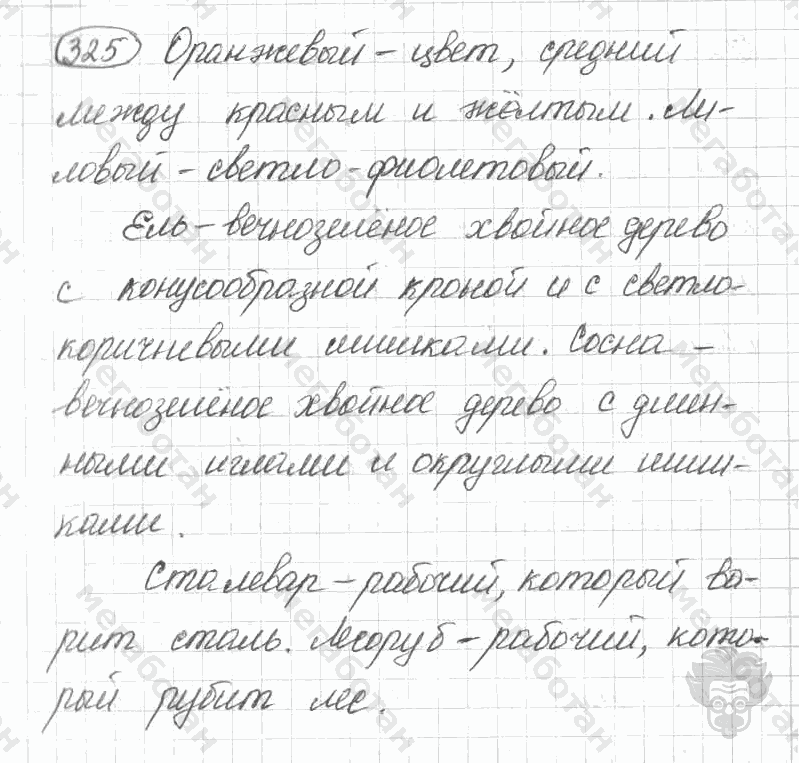 325 Оранжевый – цвет, средний
между красным и жёлтым. Ли-
ловый – светло-фиолетовый.
Ель – вечнозелёное хвойное дерево
с конусообразной кроной и с светло-
коричневыми шишками. Сосна –
вечнозелёное хвойное дерево с длин-
ными иглами и округлыми шиш-
ками.
Сталевар – рабочий, который ва-
рит сталь. Лесоруб – рабочий, кото-
рый рубит лес.
мегаботан